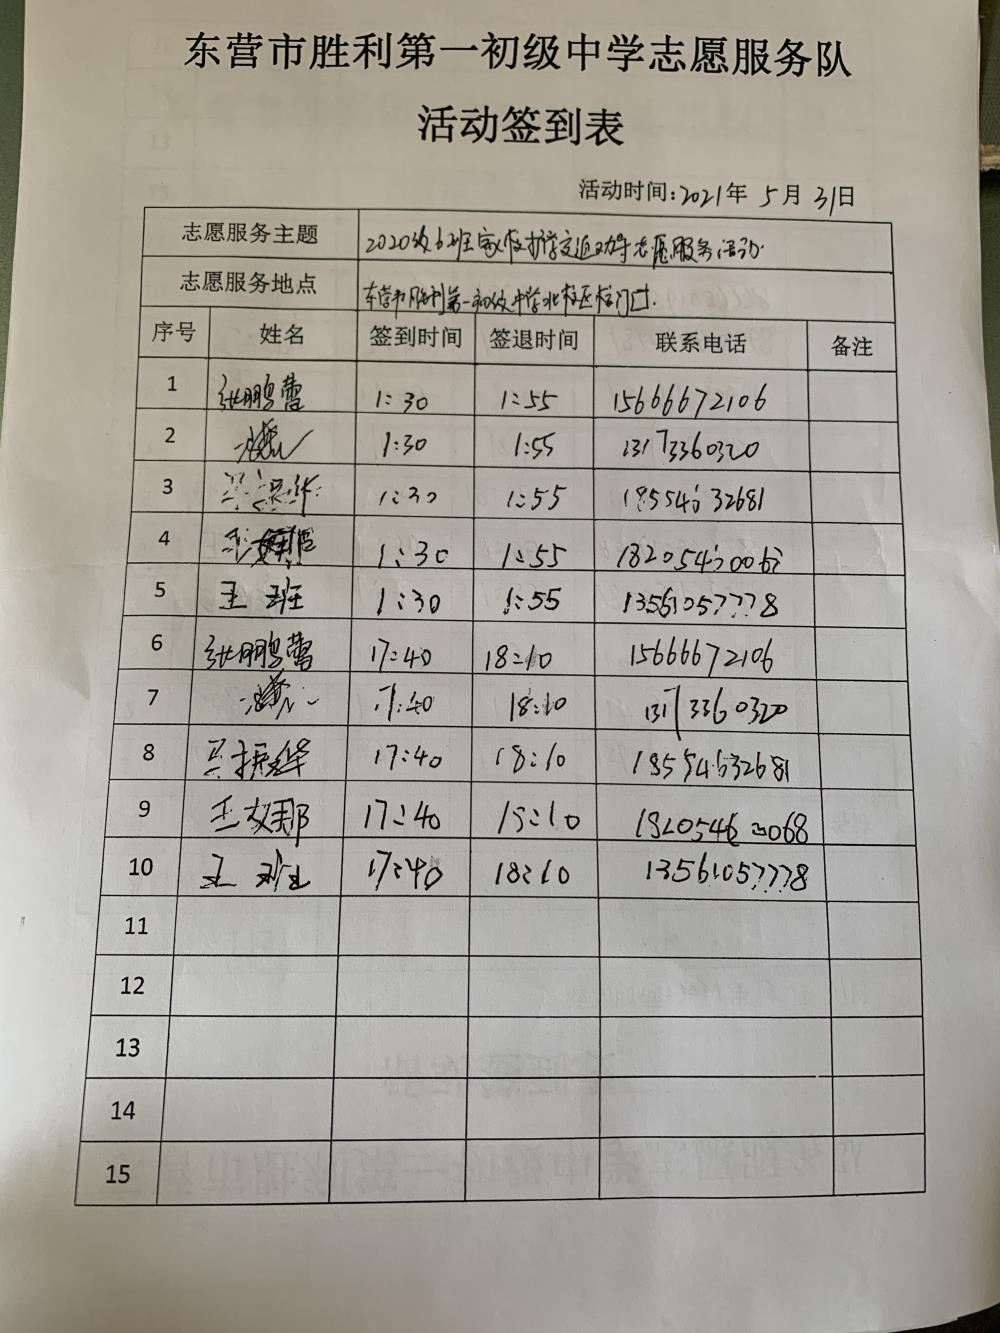 东营市胜利第一初级中学志愿服务队
活动签到表
活动时间:2021年 5月 31日
志愿服务主题 2020级6班家校护学交通劝导志愿服务活动
志愿服务地点 东营市胜利第一初级中学北校区校门口.
序号 姓名 签到时间 签退时间 联系电话 备注
1 张鹏蕾 1:30 1:55 15666672106
2 1:30 1:55 13173360320
3 1:30 1:55 18554632681
4 1:30 1:55
5 王 班 1:30 1:55 13561057778
6 张鹏蕾 17:40 18:10 15666672106
7 17:40 18:10 13173360320
8 17:40 18:10 18554632681
9 17:40 18:10
10 王 班 17:40 18:10 13561057778
11
12
13
14
15